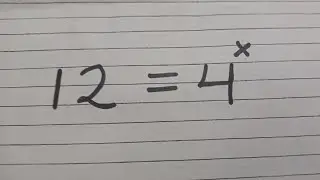 12 = 4ˣ